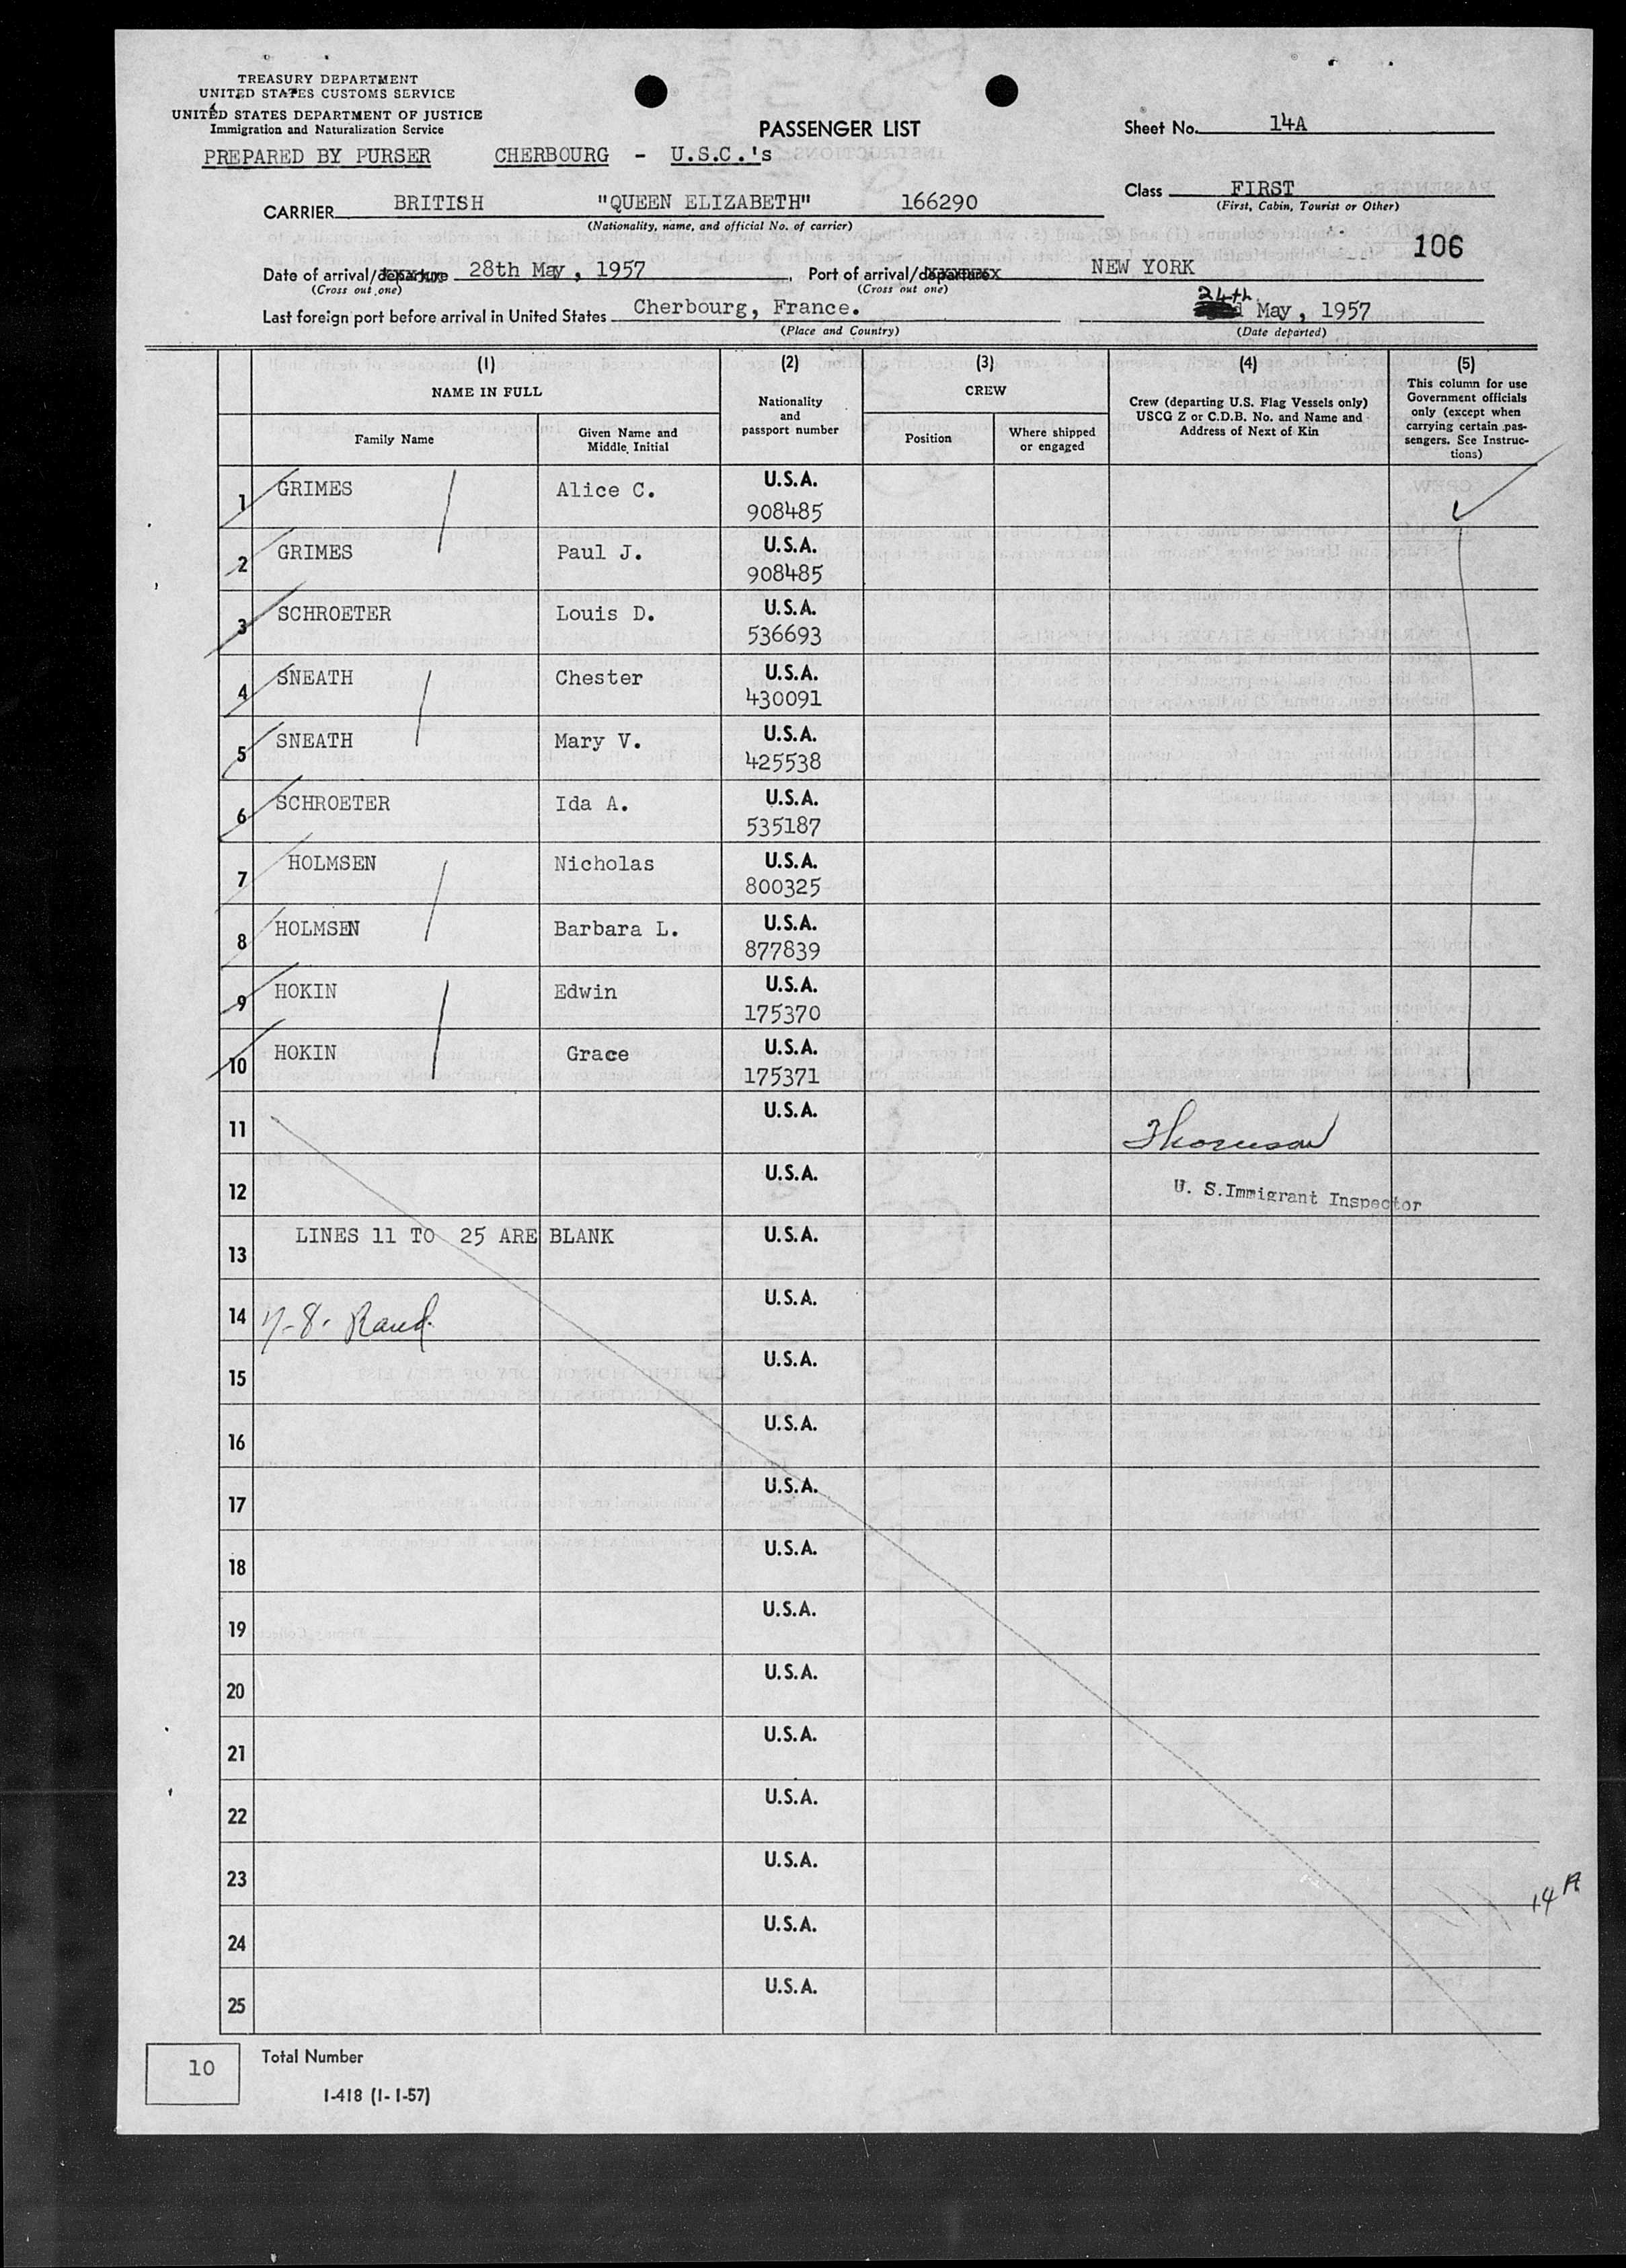 TREASURY DEPARTMENT
UNITED STATES CUSTOMS SERVICE
UNITED STATES DEPARTMENT OF JUSTICE
Immigration and Naturalization Service
PASSENGER LIST
Sheet No. 14A
PREPARED BY PURSER CHERBOURG - U.S.C.'s
Class FIRST
(First, Cabin, Tourist or Other)
CARRIER BRITISH "QUEEN ELIZABETH" 166290
(Nationality, name, and official No. of carrier)
106
Date of arrival/departure 28th May, 1957 Port of arrival/departure NEW YORK
(Cross out one) (Cross out one)
Last foreign port before arrival in United States Cherbourg, France. 24th May, 1957
(Place and Country) (Date departed)
(1) (2) (3) (4) (5)
NAME IN FULL
Family Name
Given Name and Middle Initial
Nationality and passport number
CREW
Position
Where shipped or engaged
Crew (departing U.S. Flag Vessels only) USCG Z or C.D.B. No. and Name and Address of Next of Kin
This column for use Government officials only (except when carrying certain pas-sengers. See Instruc-tions)
1 GRIMES Alice C. U.S.A. 908485
2 GRIMES Paul J. U.S.A. 908485
3 SCHROETER Louis D. U.S.A. 536693
4 SNEATH Chester U.S.A. 430091
5 SNEATH Mary V. U.S.A. 425538
6 SCHROETER Ida A. U.S.A. 535187
7 HOLMSEN Nicholas U.S.A. 800325
8 HOLMSEN Barbara L. U.S.A. 877839
9 HOKIN Edwin U.S.A. 175370
10 HOKIN Grace U.S.A. 175371
11 U.S.A. Thomson
12 U.S.A. U. S. Immigrant Inspector
13 LINES 11 TO 25 ARE BLANK U.S.A.
14 U.S.A.
15 U.S.A.
16 U.S.A.
17 U.S.A.
18 U.S.A.
19 U.S.A.
20 U.S.A.
21 U.S.A.
22 U.S.A.
23 U.S.A.
14 A
24 U.S.A.
25 U.S.A.
10 Total Number
I-418 (1-1-57)